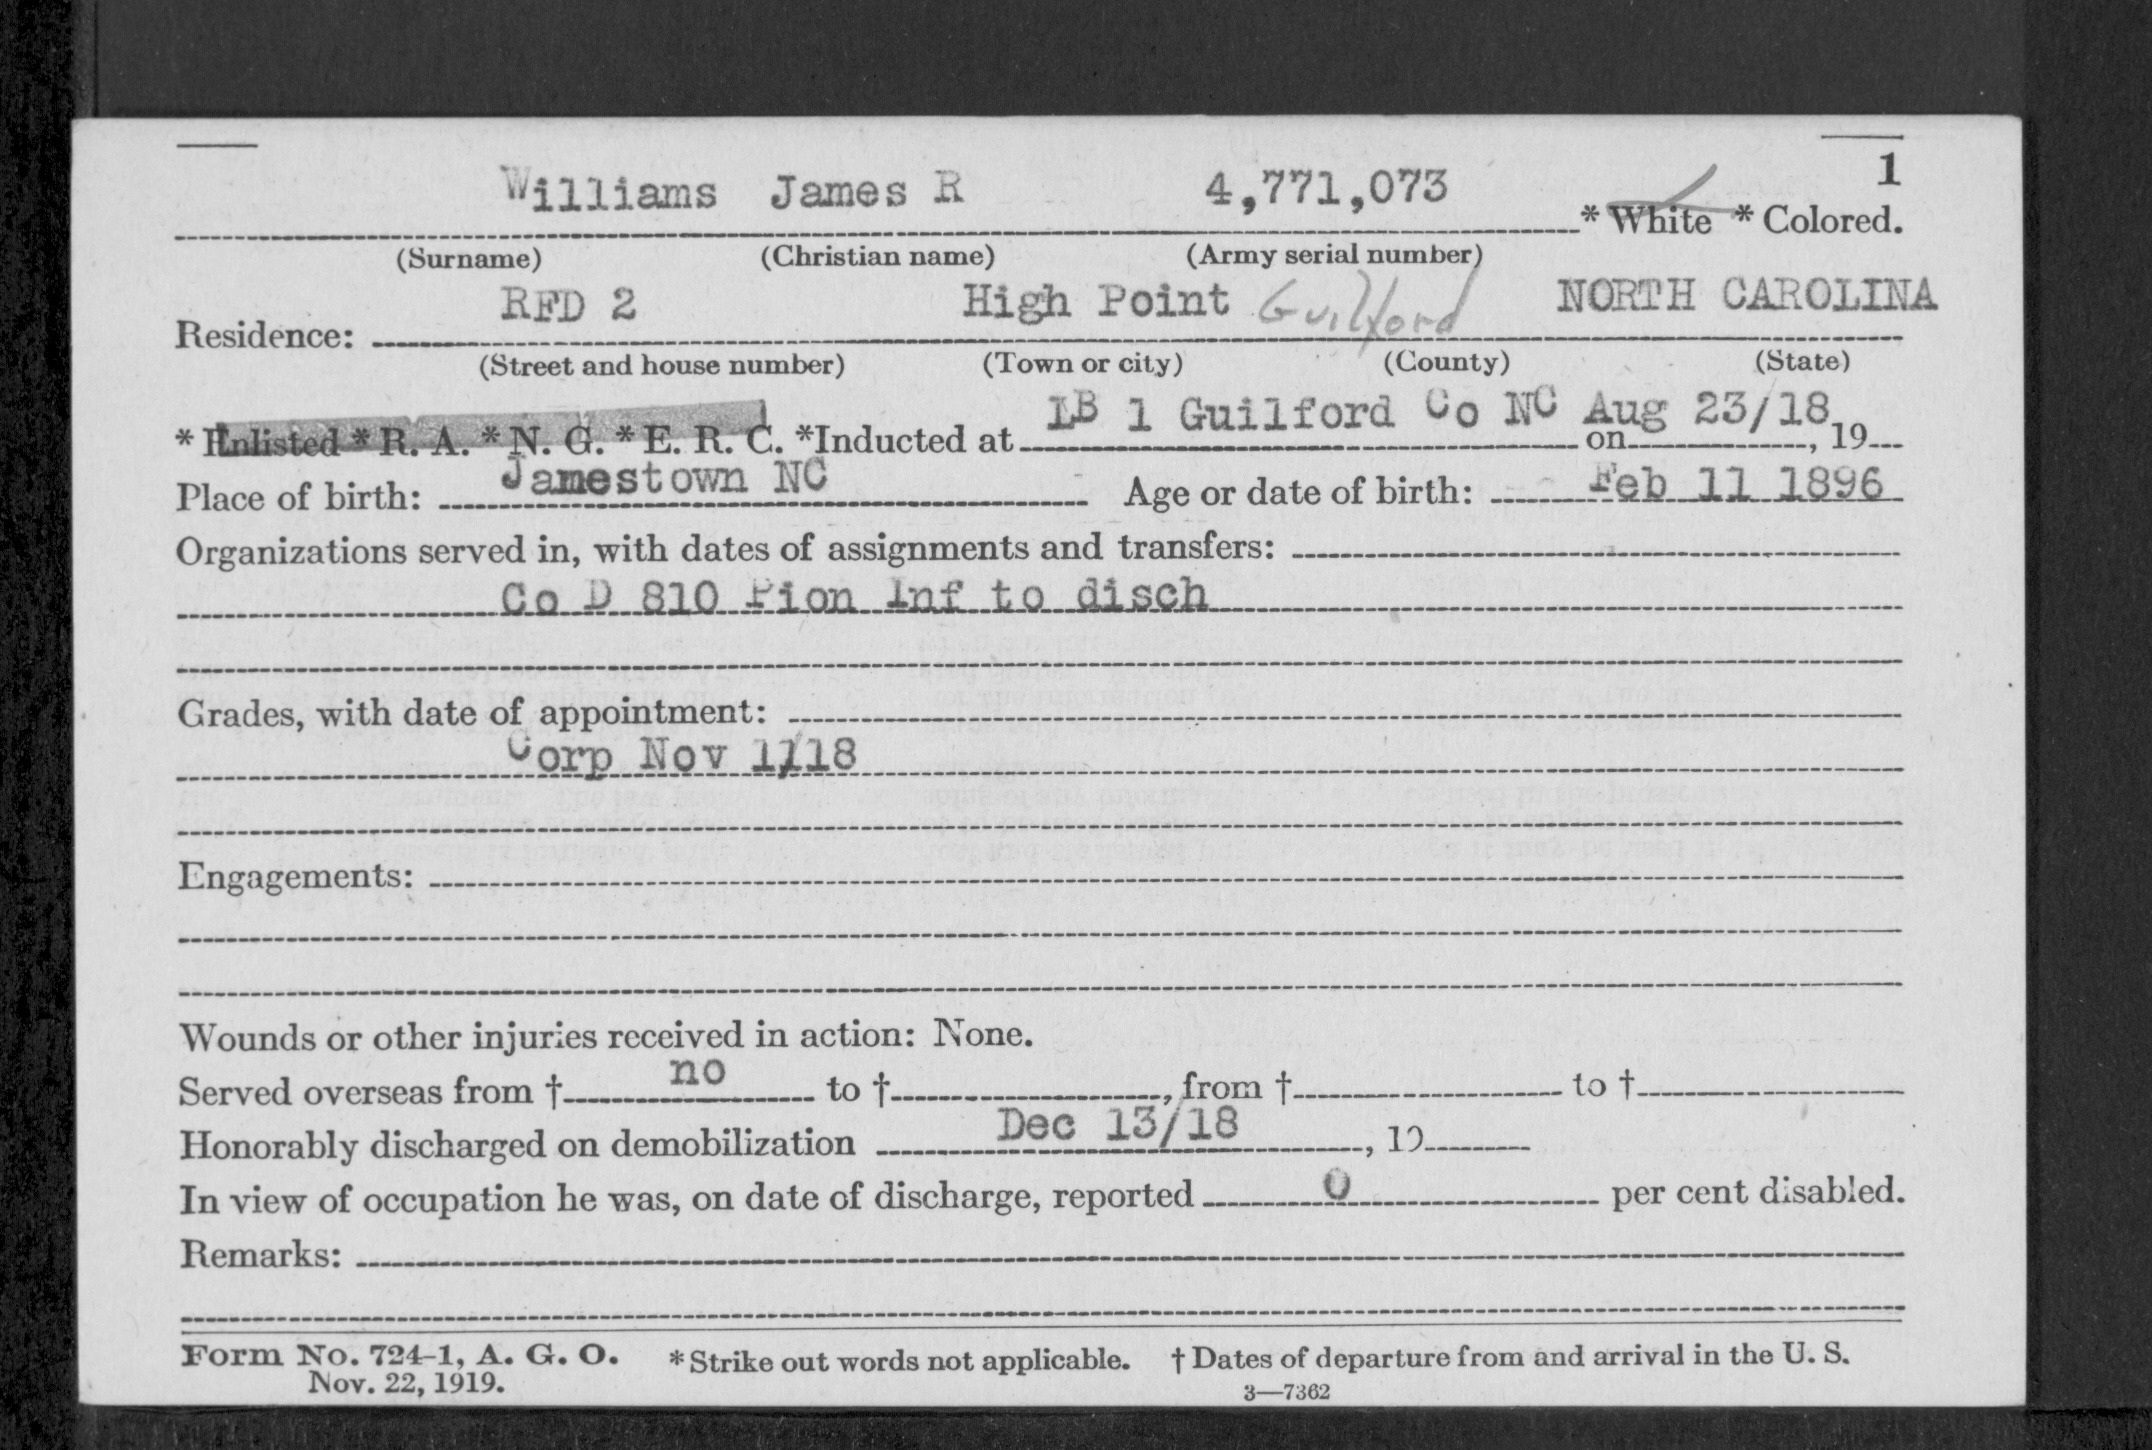 1
Williams James R 4,771,073 * White * Colored.
(Surname) (Christian name) (Army serial number)
RFD 2 High Point Guilford NORTH CAROLINA
Residence:
(Street and house number) (Town or city) (County) (State)
LB 1 Guilford Co NC Aug 23/18
* Enlisted * R. A. * N. G. * E. R. C. *Inducted at on , 19
Place of birth: Jamestown NC Age or date of birth: Feb 11 1896
Organizations served in, with dates of assignments and transfers:
Co D 810 Pion Inf to disch
Grades, with date of appointment:
Corp Nov 1/18
Engagements:
Wounds or other injuries received in action: None.
Served overseas from † no to † , from † to †
Honorably discharged on demobilization Dec 13/18 , 19
In view of occupation he was, on date of discharge, reported 0 per cent disabled.
Remarks:
Form No. 724-1, A. G. O. * Strike out words not applicable. † Dates of departure from and arrival in the U. S.
Nov. 22, 1919. 3—7362